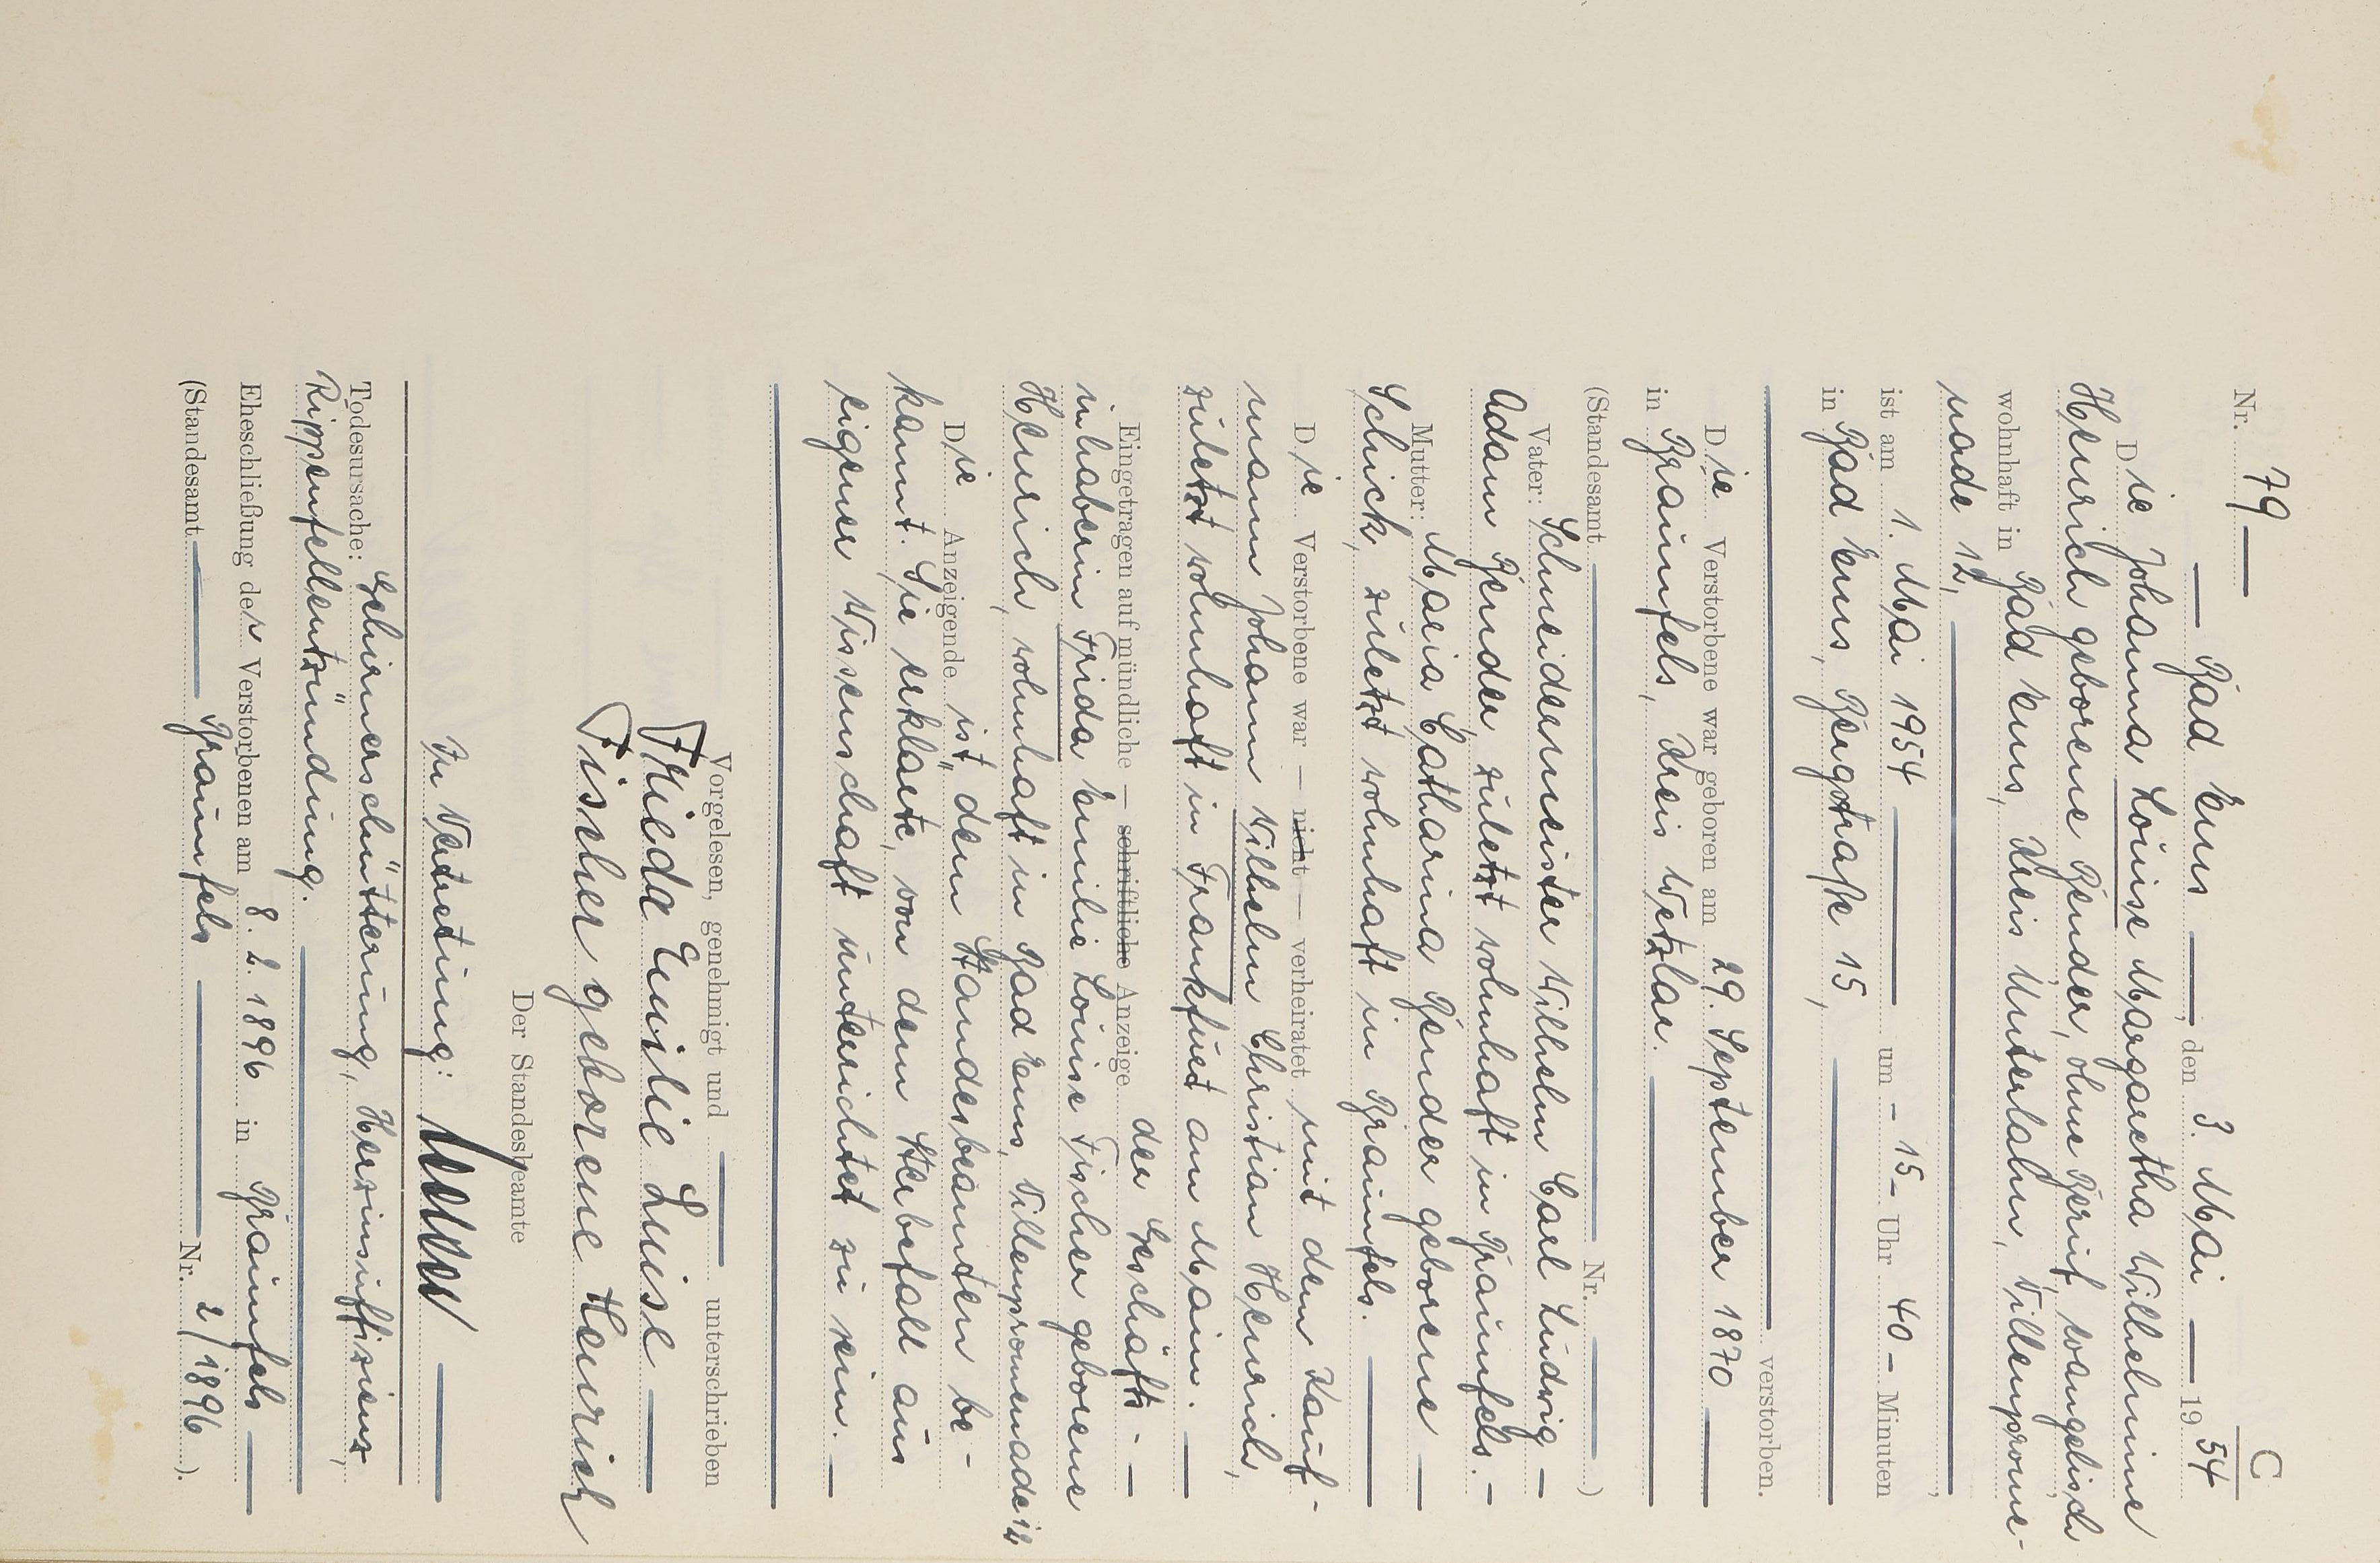 C
Nr. 79
Bad Ems, den 3. Mai 1954
Die Johanna Louise Margaretha Wilhelmine
Heinrich geborene Bender, ohne Beruf, evangelisch,
wohnhaft in Bad Ems, Kreis Unterlahn, Villenprome-
nade 12,
ist am 1. Mai 1954 um - 15 - Uhr 40 - Minuten
in Bad Ems, Bergstraße 15,
verstorben.
Die Verstorbene war geboren am 29. September 1870
in Braunfels, Kreis Wetzlar.
(Standesamt Nr. )
Vater: Schneidermeister Wilhelm Carl Ludwig
Adam Bender zuletzt wohnhaft in Braunfels.
Mutter: Maria Catharina Bender geborene
Schick, zuletzt wohnhaft in Braunfels.
Die Verstorbene war — nicht — verheiratet mit dem Kauf-
mann Johann Wilhelm Christian Heinrich,
zuletzt wohnhaft in Frankfurt am Main.
Eingetragen auf mündliche — schriftliche Anzeige der Geschäfts-
inhaberin Frida Emilie Louise Fischer geborene
Heinrich, wohnhaft in Bad Ems, Villenpromenade 12
Die Anzeigende ist dem Standesbeamten be-
kannt. Sie erklärte, von dem Sterbefall aus
eigener Wissenschaft unterrichtet zu sein.
Vorgelesen, genehmigt und unterschrieben
Frieda Emilie Luise
Fischer geborene Heinrich
Der Standesbeamte
In Vertretung:
Todesursache: Gehirnerschütterung, Herzinsuffizienz,
Rippenfellentzündung.
Eheschließung der Verstorbenen am 8. 2. 1896 in Braunfels
(Standesamt Braunfels Nr. 2/1896 ).